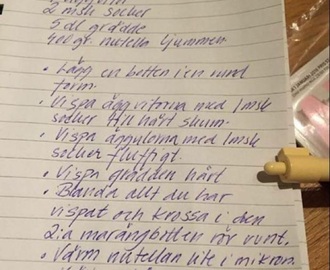 2 msk socker
5 dl grädde
400 gr. nutella ljummen
• Lägg en botten i en rund
form.
• Vispa äggvitorna med 1msk
socker till hårt skum.
• Vispa äggulorna med 1msk
socker fluffigt.
• Vispa grädden hårt
• Blanda allt du har
vispat och krossa i den
2:a marängbotten rör runt.
• Värm nutellan lite i mikron.